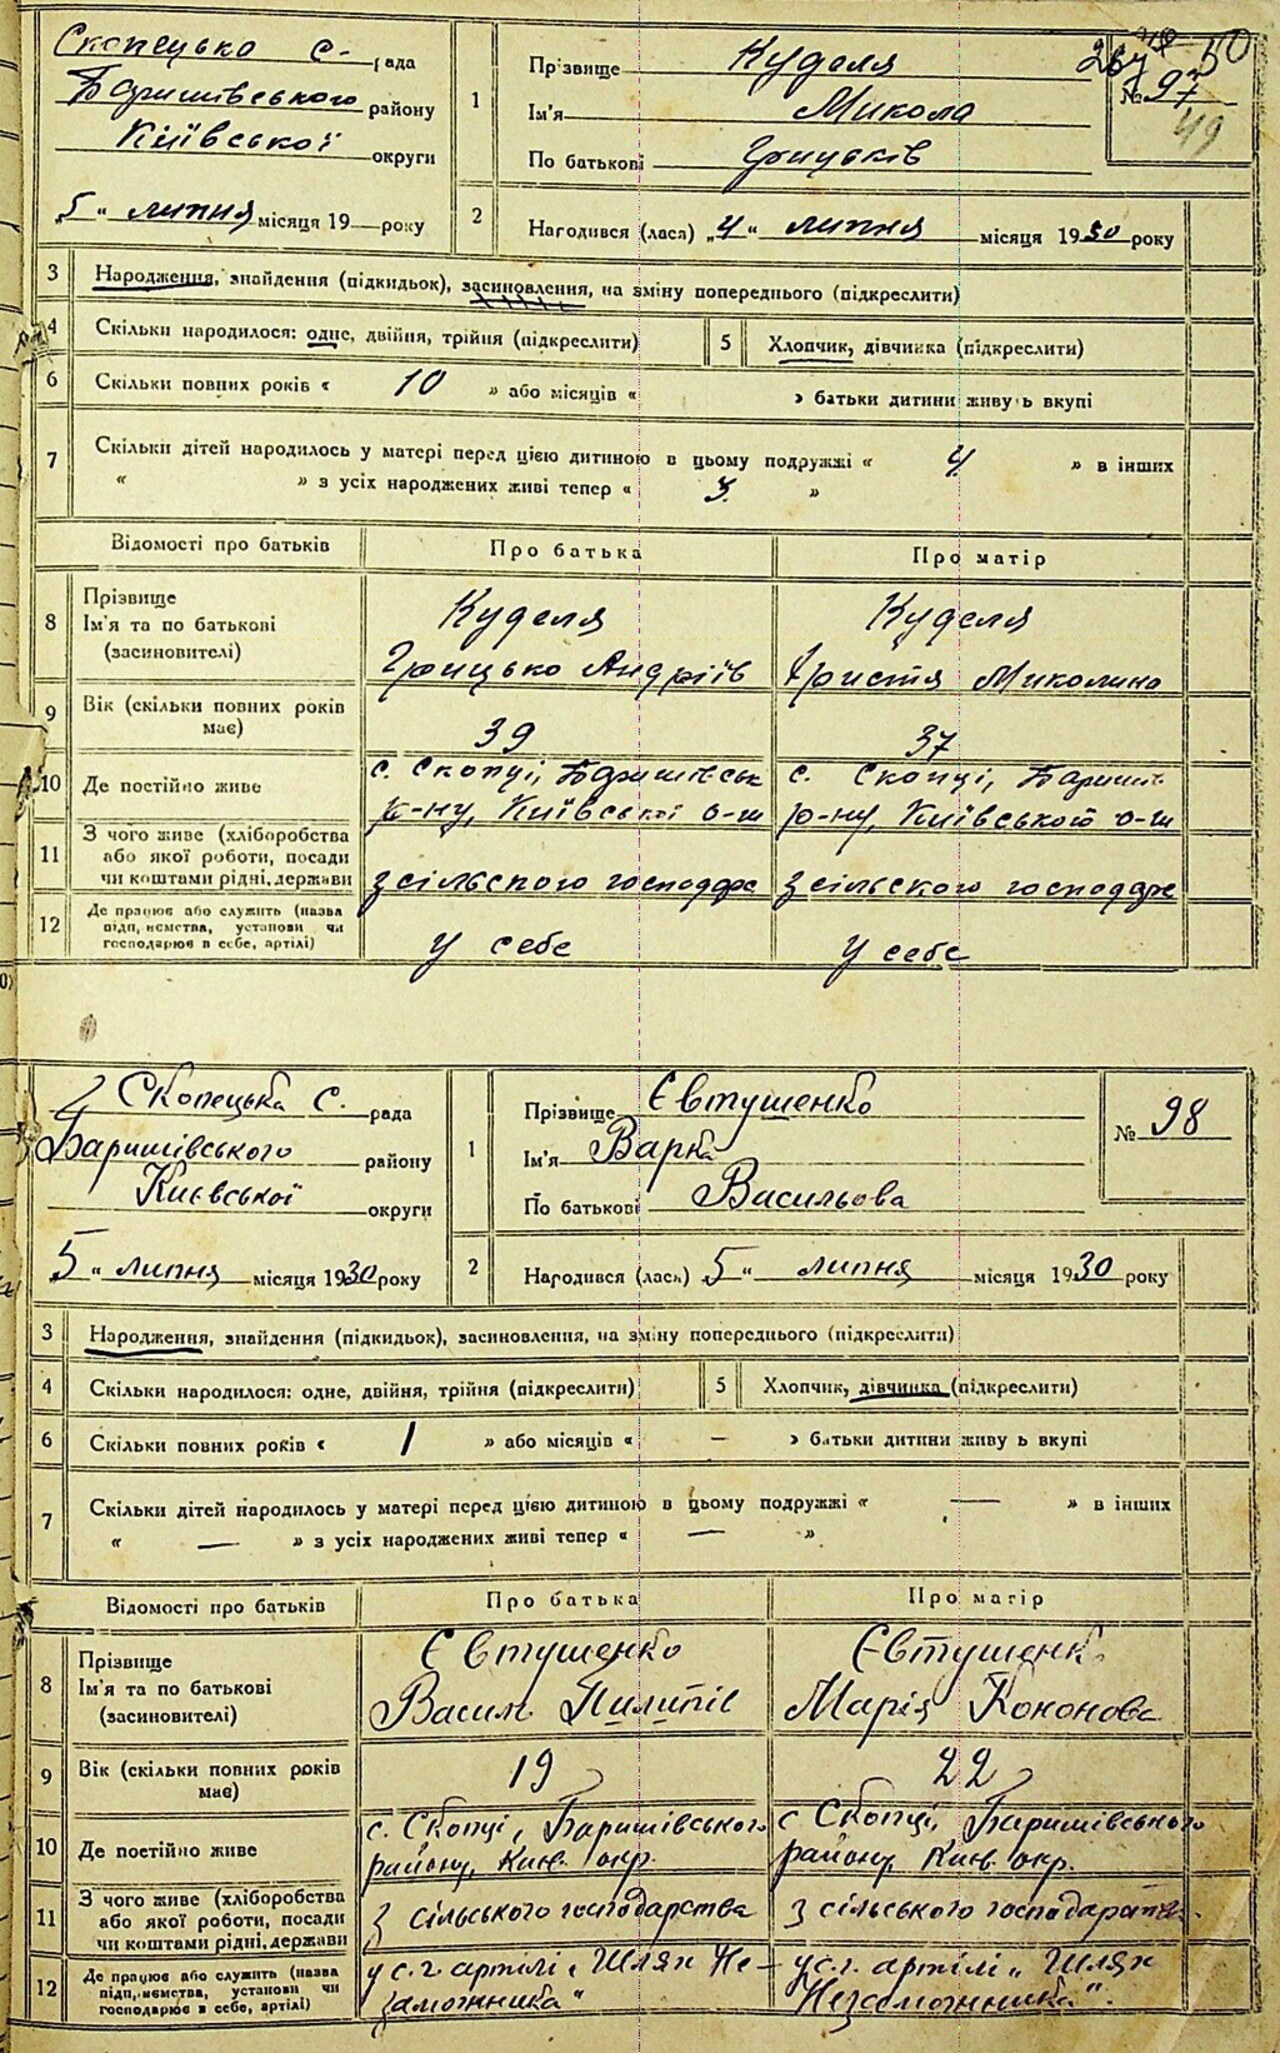 Скопецько с. рада
Баришівського району
Київської округи
„5“ липня місяця 19 року
1
Прізвище Куделя
Ім'я Микола
По батькові Грицьків
№ 97
50
49
2
Нагодився (лася) „4“ липня місяця 1930 року
3 Народження, знайдення (підкидьок), засиновлення, на зміну попереднього (підкреслити)
4 Скільки народилося: одне, двійня, трійня (підкреслити)
5 Хлопчик, дівчинка (підкреслити)
6 Скільки повних років « 10 » або місяців « » батьки дитини живуь вкупі
7 Скільки дітей народилось у матері перед цією дитиною в цьому подружжі « 4 » в інших
« » з усіх народжених живі тепер « 3. »
Відомості про батьків Про батька Про матір
8 Прізвище Куделя Куделя
Ім'я та по батькові
(засиновителі) Грицько Андріїв Христя Миколина
9 Вік (скільки повних років
має) 39 37
10 Де постійно живе с. Скопці, Баришівськ с. Скопці, Баришів
р-ну, Київської о-ги р-ну, Київського о-ги
11 З чого живе (хліборобства
або якої роботи, посади
чи коштами рідні, держави з сільського господарс з сільського господарс
12 Де працює або служить (назва
підп,иємства, установи чи
господарює в себе, артілі) у себе у себе
Скопецька с. рада
Баришівського району
Києвської округи
„5“ липня місяця 1930 року
1
Прізвище Євтушенко
Ім'я Варка
По батькові Васильова
№ 98
2
Нагодився (лася) „5“ липня місяця 1930 року
3 Народження, знайдення (підкидьок), засиновлення, на зміну попереднього (підкреслити)
4 Скільки народилося: одне, двійня, трійня (підкреслити)
5 Хлопчик, дівчинка (підкреслити)
6 Скільки повних років « 1 » або місяців « — » батьки дитини живуь вкупі
7 Скільки дітей народилось у матері перед цією дитиною в цьому подружжі « — » в інших
« — » з усіх народжених живі тепер « — »
Відомості про батьків Про батька Про матір
8 Прізвище Євтушенко Євтушенк
Ім'я та по батькові
(засиновителі) Васил Пилипів Марія Кононова
9 Вік (скільки повних років
має) 19 22
10 Де постійно живе с. Скопці, Баришівського с Скопці, Баришівського
району, Київ. окр. району, Київ. окр.
11 З чого живе (хліборобства
або якої роботи, посади
чи коштами рідні, держави з сільського господарства з сільського господарства
12 Де працює або служить (назва
підп,иємства, установи чи
господарює в себе, артілі) у с.г. артілі „Шлях Не- у с.г. артілі „Шлях
заможника“ Незаможника“.